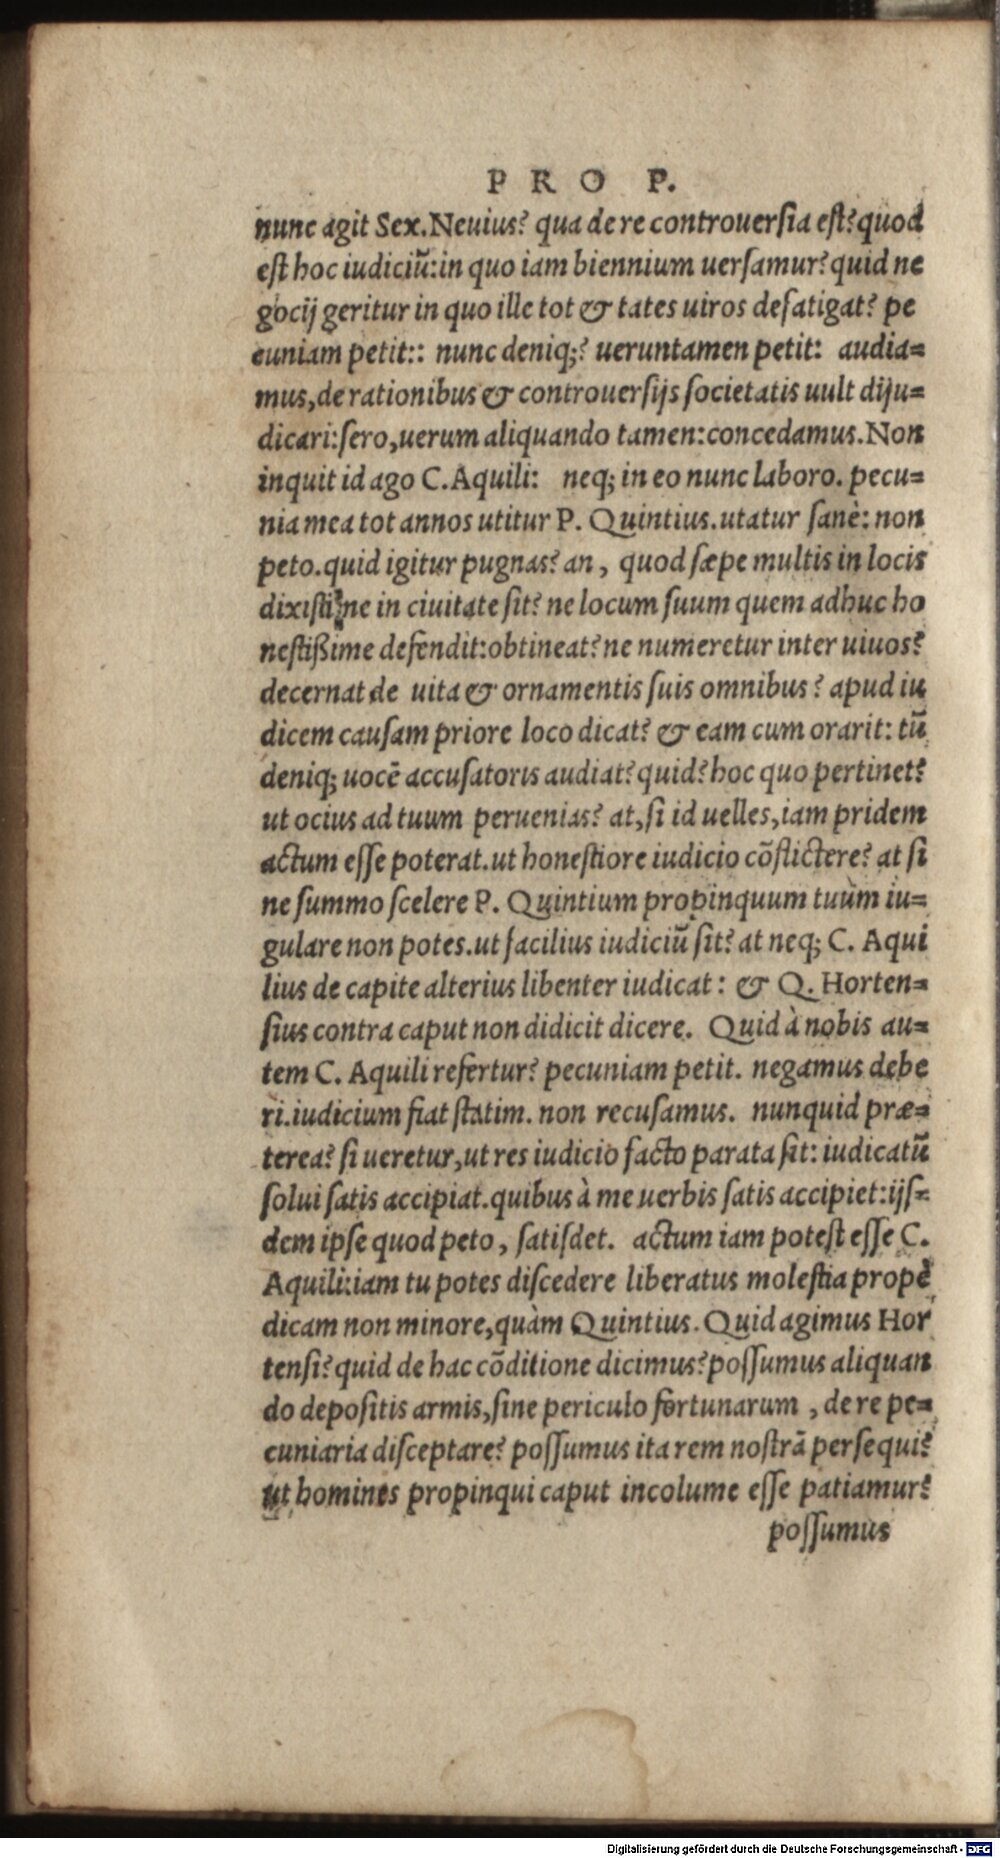 PRO P.
nunc agit Sex. Neuius? qua de re controuersia est? quod
est hoc iudiciũ: in quo iam biennium uersamur? quid ne
gocij geritur in quo ille tot & tates uiros defatigat? pe
cuniam petit:: nunc deniq;? ueruntamen petit: audia=
mus, de rationibus & controuersijs societatis uult diju=
dicari: sero, uerum aliquando tamen: concedamus. Non
inquit id ago C. Aquili: neq; in eo nunc laboro. pecu=
nia mea tot annos utitur P. Quintius. utatur sanè: non
peto. quid igitur pugnas? an, quod sæpe multis in locis
dixisti, ne in ciuitate sit? ne locum suum quem adhuc ho
nestißime defendit: obtineat? ne numeretur inter uiuos?
decernat de uita & ornamentis suis omnibus? apud iu
dicem causam priore loco dicat? & eam cum orarit: tũ
deniq; uocẽ accusatoris audiat? quid? hoc quo pertinet?
ut ocius ad tuum peruenias? at, si id uelles, iam pridem
actum esse poterat. ut honestiore iudicio cõflictere? at si
ne summo scelere P. Quintium propinquum tuùm iu=
gulare non potes. ut facilius iudiciũ sit? at neq; C. Aqui
lius de capite alterius libenter iudicat: & Q. Horten=
sius contra caput non didicit dicere. Quid à nobis au=
tem C. Aquili refertur? pecuniam petit. negamus debe
ri. iudicium fiat statim. non recusamus. nunquid præ=
terea? si ueretur, ut res iudicio facto parata sit: iudicatũ
solui satis accipiat. quibus à me uerbis satis accipiet: ijs=
dem ipse quod peto, satisdet. actum iam potest esse C.
Aquili: iam tu potes discedere liberatus molestia propè
dicam non minore, quàm Quintius. Quid agimus Hor
tensi? quid de hac cõditione dicimus? possumus aliquan
do depositis armis, sine periculo fortunarum, de re pe=
cuniaria disceptare? possumus ita rem nostrã persequi?
ut homines propinqui caput incolume esse patiamur?
possumus
Digitalisierung gefördert durch die Deutsche Forschungsgemeinschaft - DFG